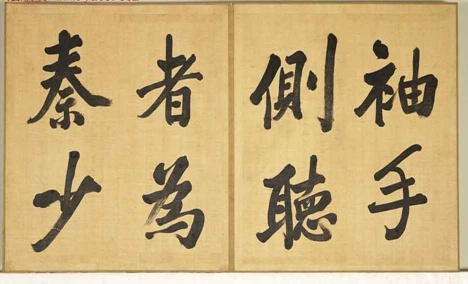 袖手
側聽
者為
秦少